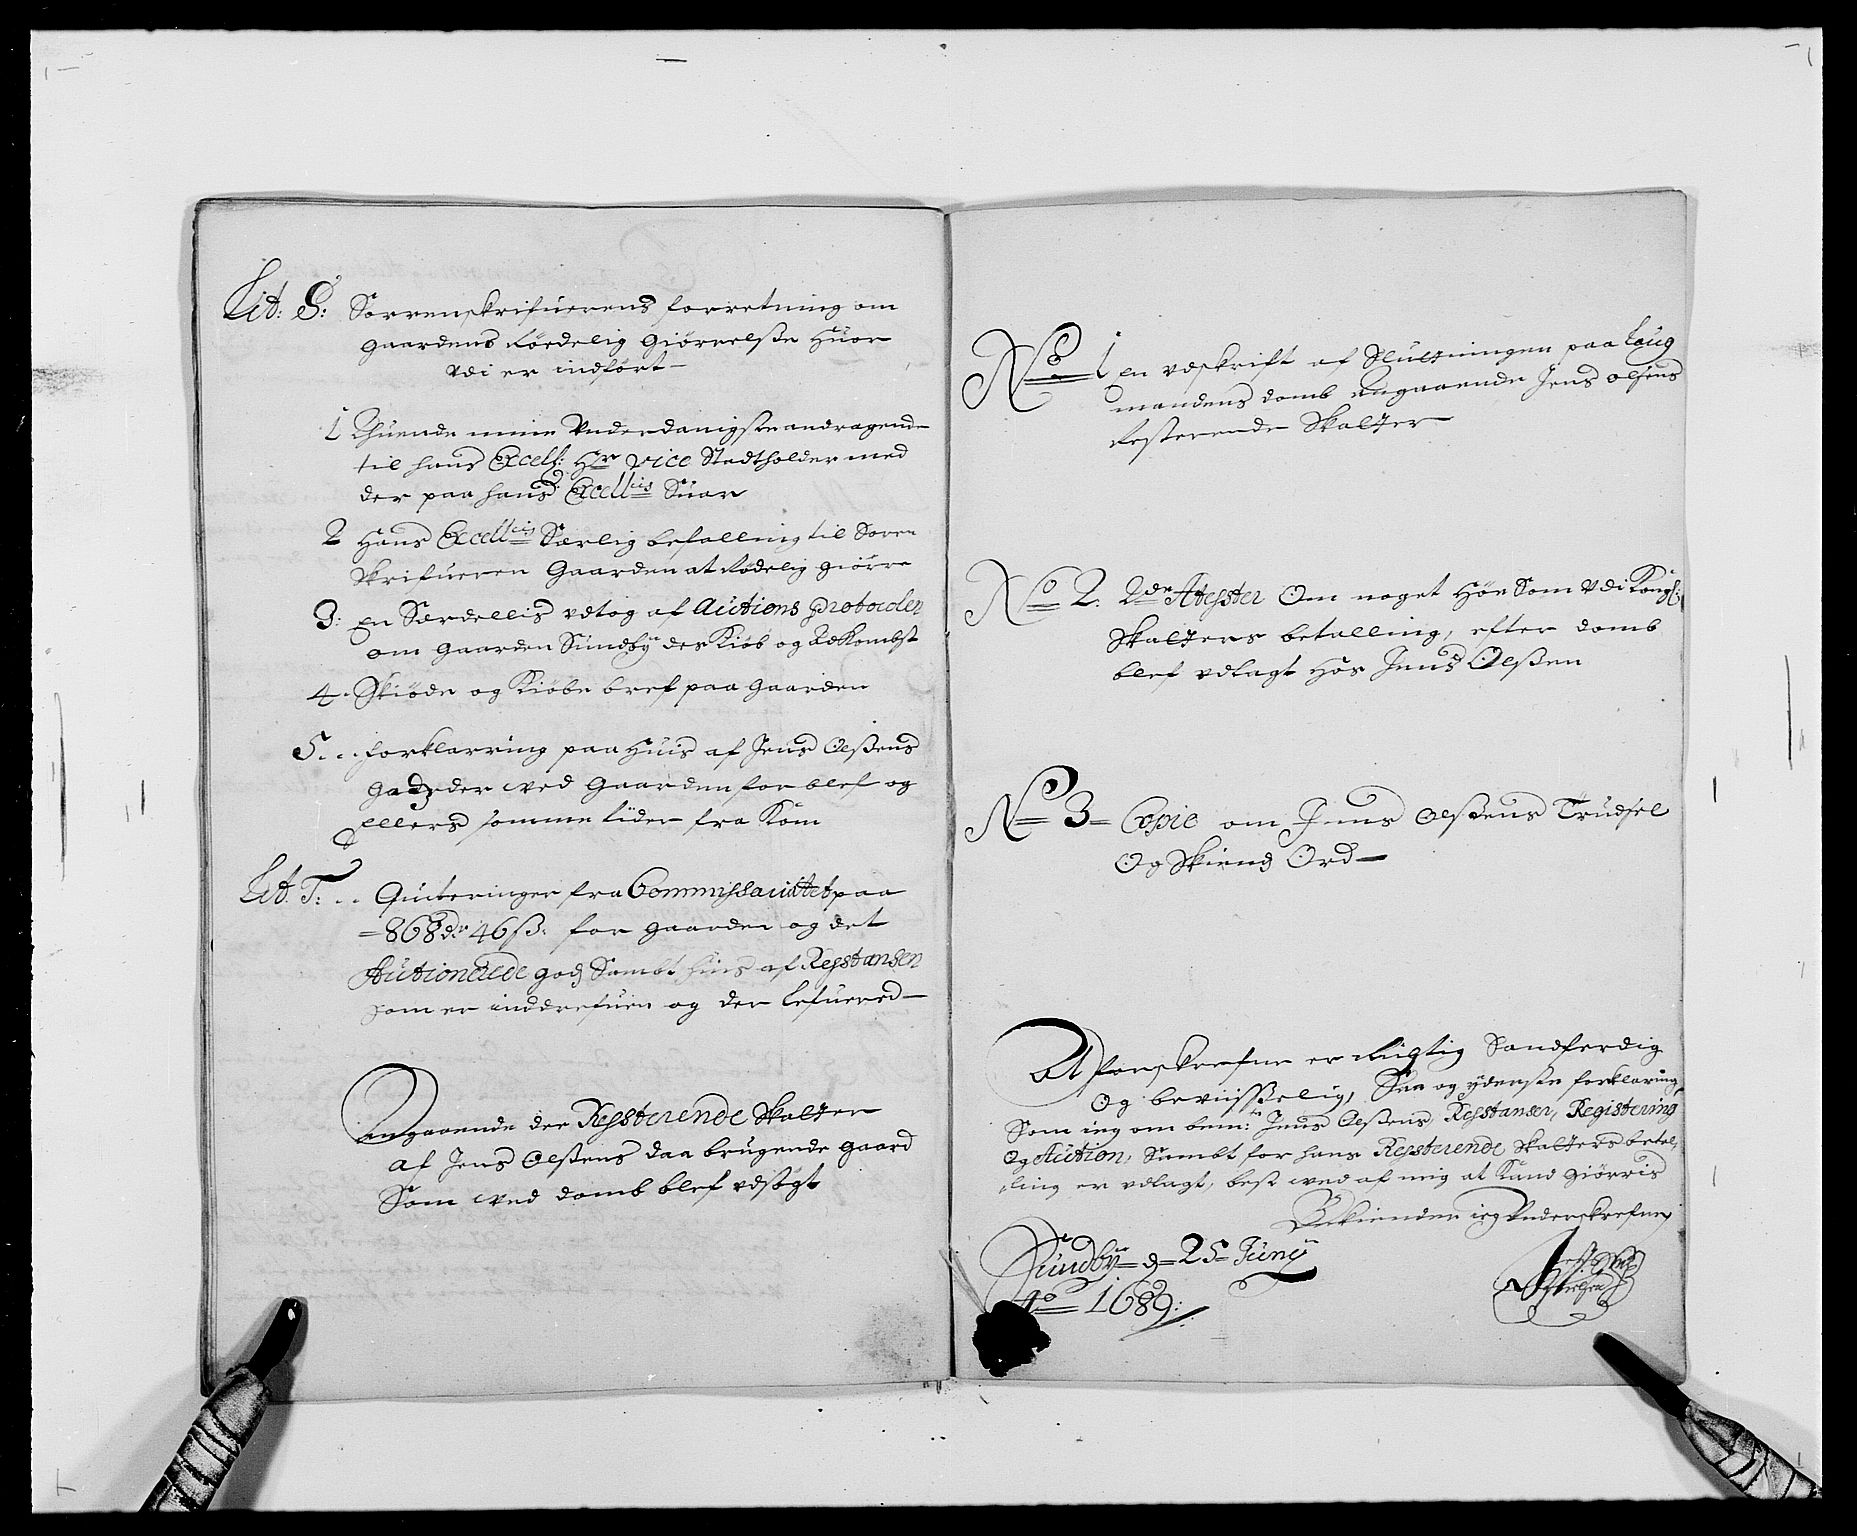 Lit: S: Sorrenskrifuerens forretning om
Gaardens Röedelig Giörrelsse Huor
Vdi er indfört
1 Thuende mine Vnderdanigste andragende
til hans Excell: Hr Vice Stadtholder med
der paa hans Excellis Suar
2 Hans Excellis Særlig befalling til Soren
skrifueren Gaarden at Rödelig giörre
3: En Særdellis vdtog af Auctions Protocolen
om Gaarden Sundby des Kiöb og Vdkombst
4. Skiöde og Kiöbe bref paa Gaarden
5. forklarring paa Huis af Jens Olssens
Godz der wed Gaarden for blef og
Ellers somme tider fra Kom
Lit. T: Quiteringer fra Commissariatet paa
868 dr 46 ss: for gaarden og det
Auctionerede godz Sambt huis af Resstansen
som er inddrefuen og der lefuered
Angaaende der Ressterende Skatter
af Jens Olssens daa brugende Gaard
Som wed domb blef vdsögt
No 1 En vdskrift af Slutningen paa Laug
mandens domb angaaende Jens Olsens
Resterende Skatter
No 2. 2de Atesster Om noget Höe Som Vdi Kongl:
Skatters betalling, efter domb
blef vdlagt Hos Jens Olssen
No 3 Copie om Jens Olssens Trudsel
Og Skiends Ord
At forskrefne er Rigtig Sandferdig
Og beviisselig, Saa og yderste forklaring
Som ieg om bem:te Jens Olssens Resstanser, Registering
Og Auction, Sambt for hans Ressterende Skatters betal,,
,,ling er vdlagt, best wed af mig at Kand giörris
Bekiender ieg Vnderskrefne
Sundby d 25 Juny
Ao 1689: